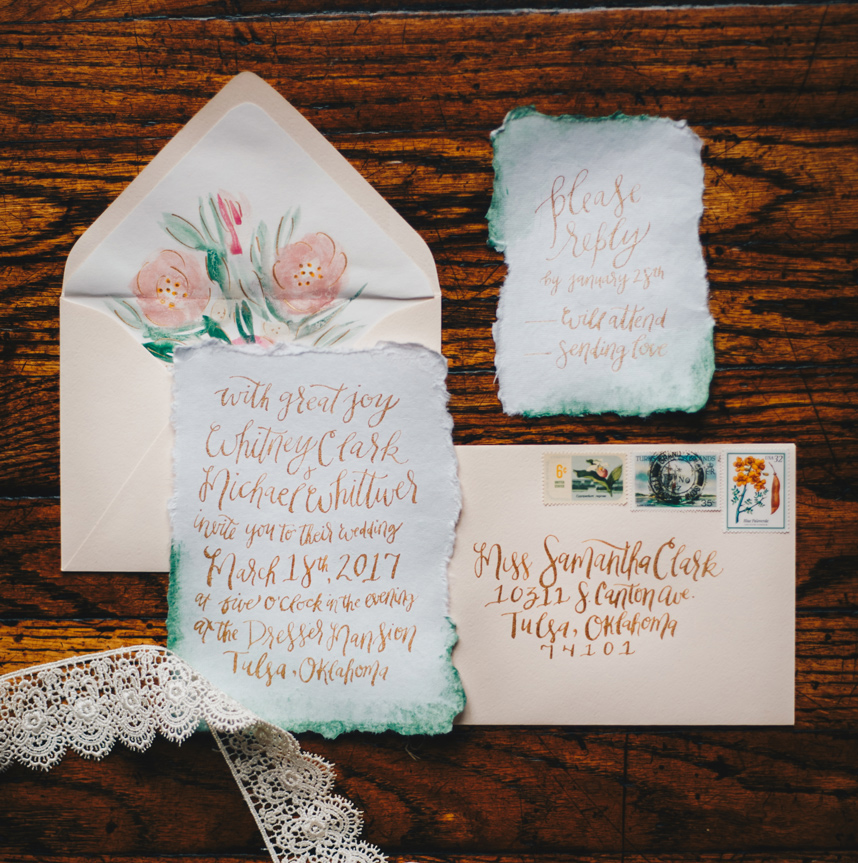 with great joy
Whitney Clark
&
Michael Whittwer
invite you to their wedding
March 18th, 2017
at five o'clock in the evening
at the Dresser Mansion
Tulsa, Oklahoma
please
reply
by january 28th
will attend
sending love
6¢
35
USA 12
Miss Samantha Clark
10311 S. Canton Ave.
Tulsa, Oklahoma
74101